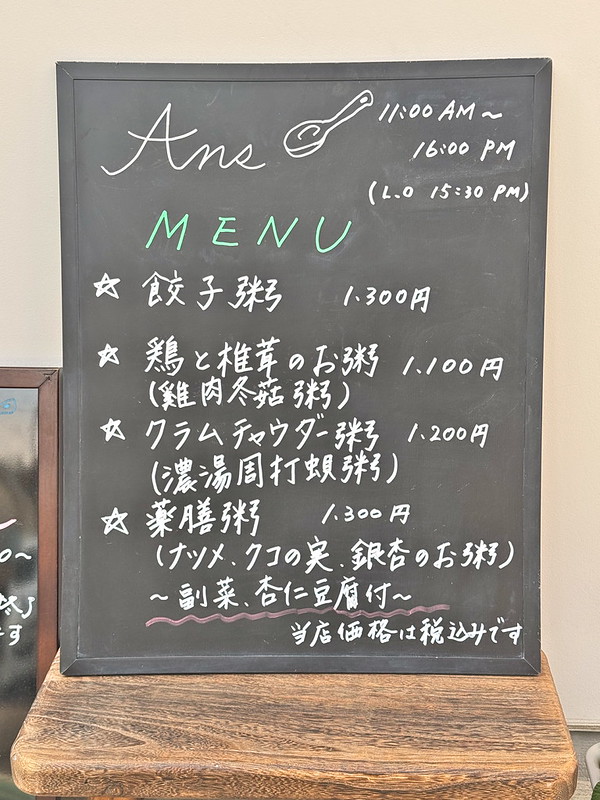 Ans
11:00 AM～
16:00 PM
(L.O 15:30 PM)
MENU
☆ 餃子粥 1.300円
☆ 鶏と椎茸のお粥 1.100円
(雞肉冬菇粥)
☆ クラムチャウダー粥 1.200円
(濃湯周打蜆粥)
☆ 薬膳粥 1.300円
(ナツメ、クコの実、銀杏のお粥)
～副菜、杏仁豆腐付～
当店価格は税込みです